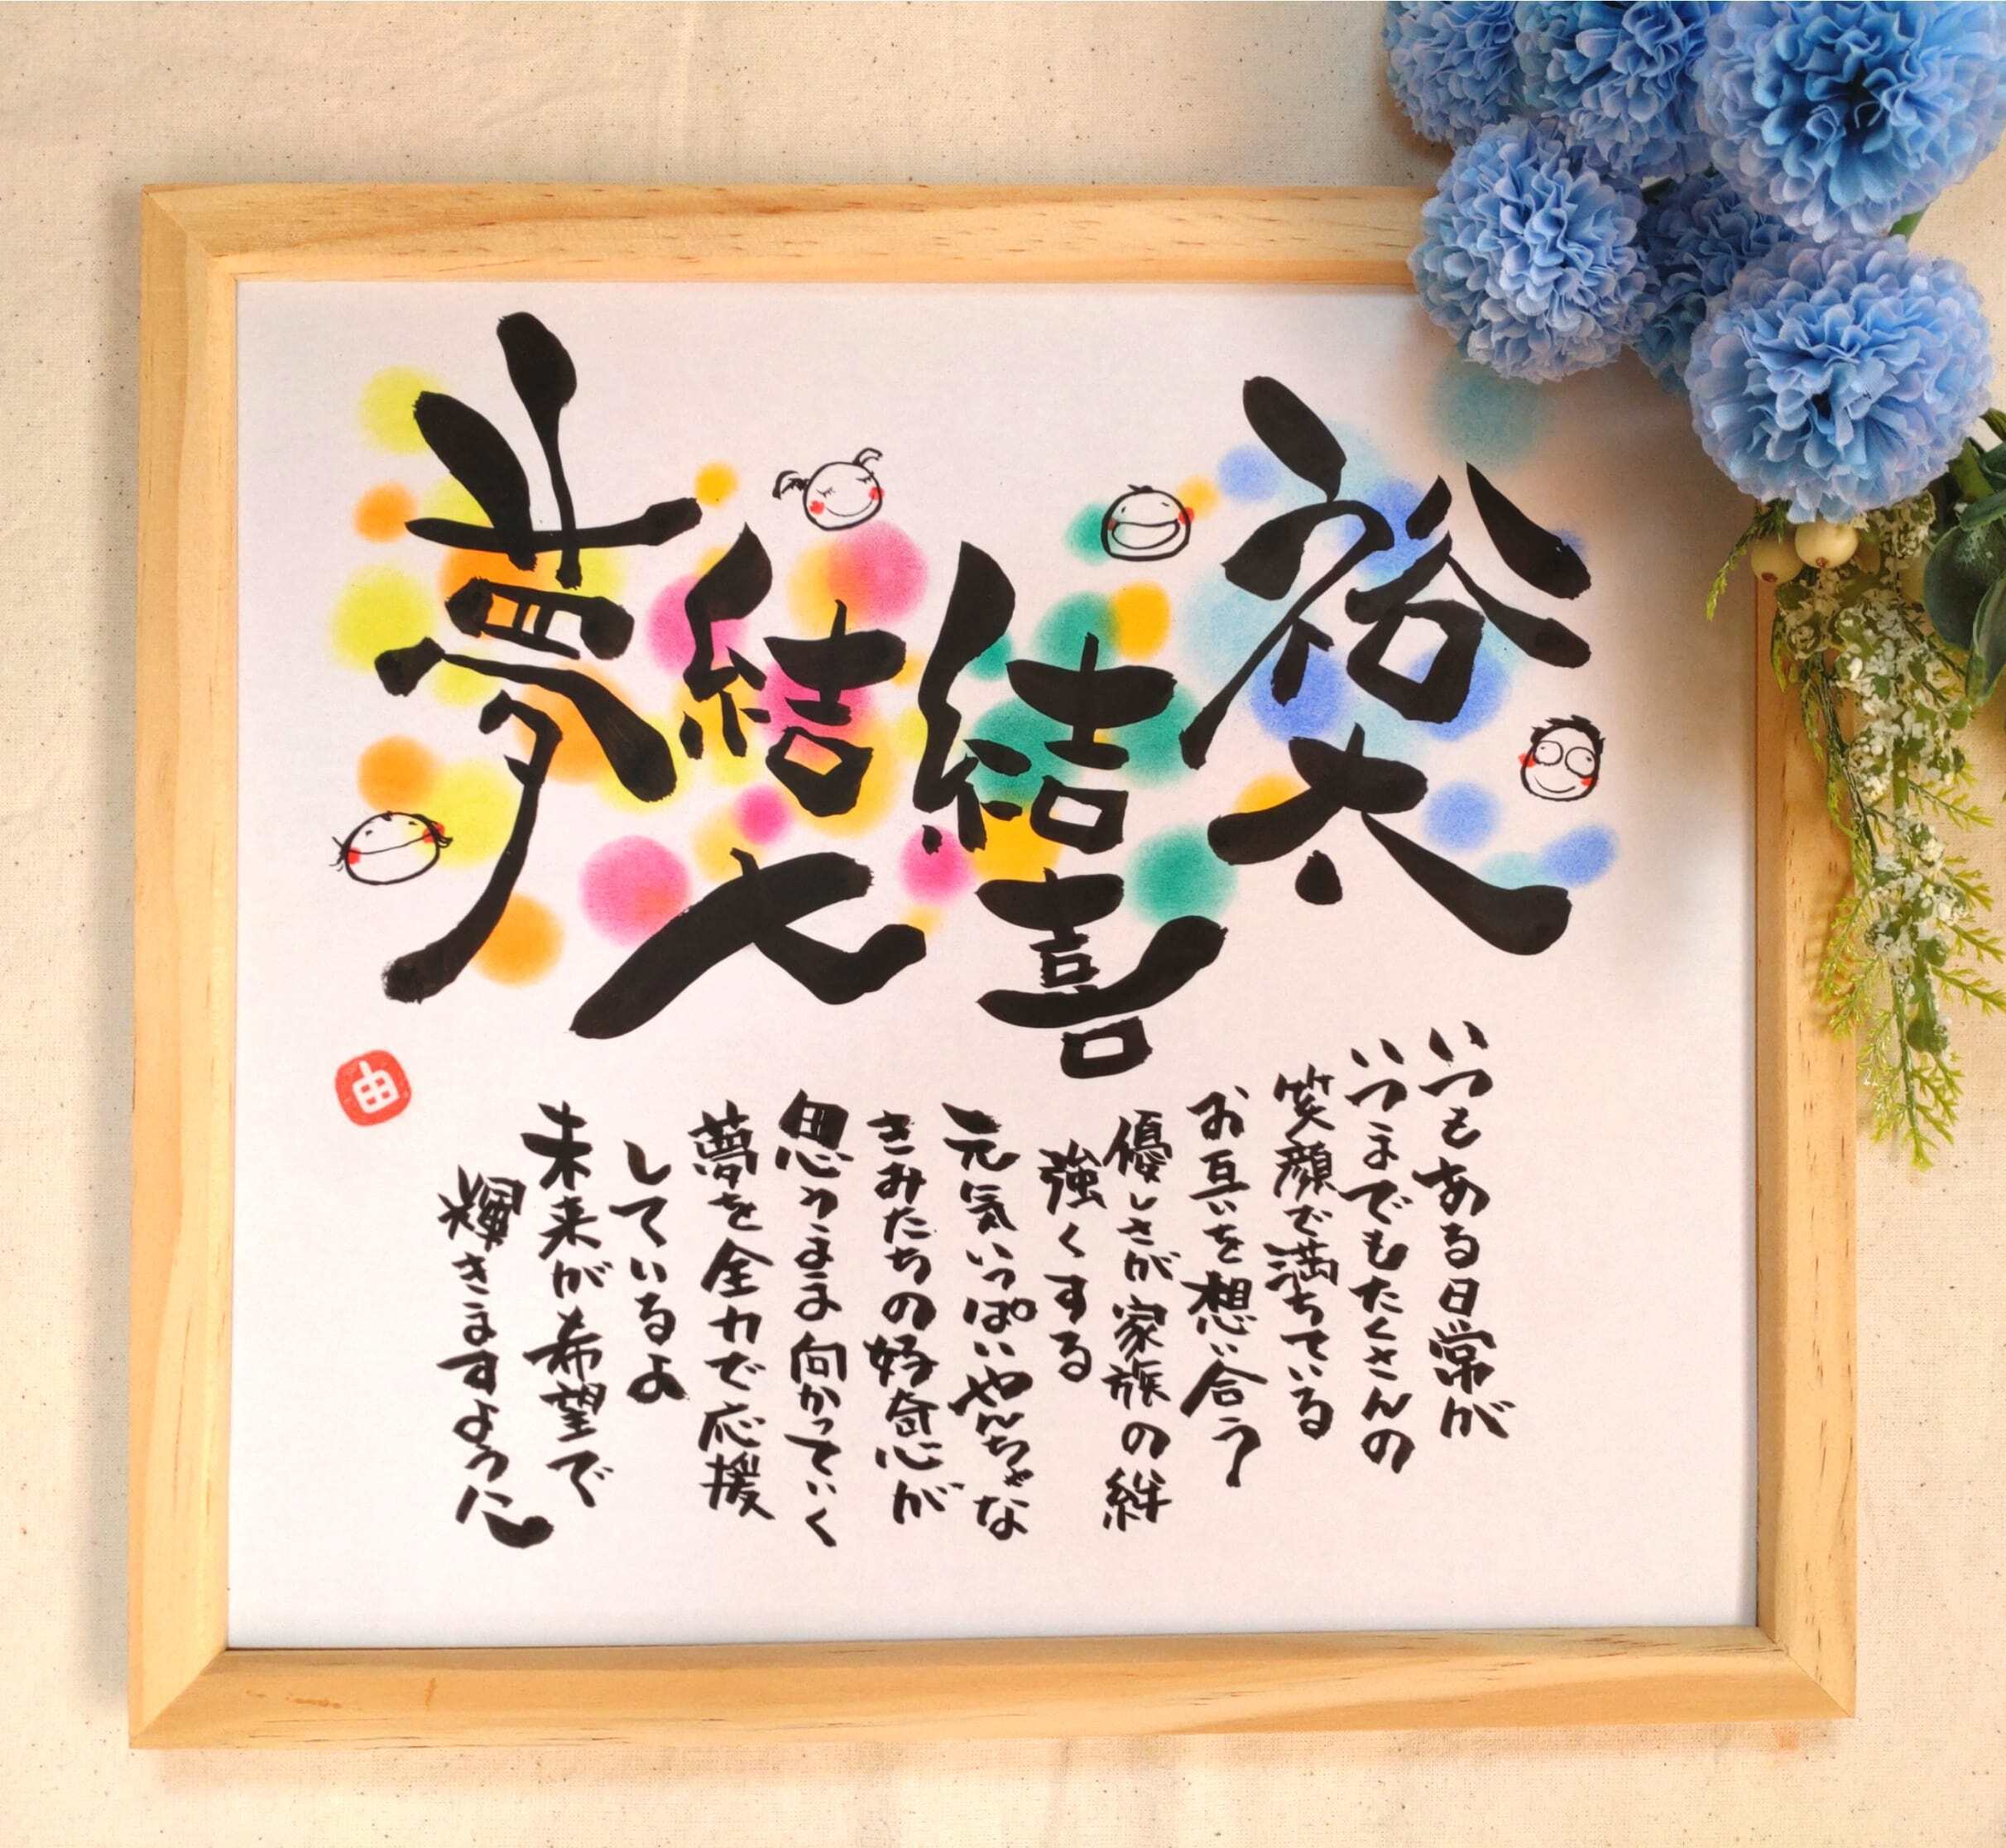 裕太
結喜
結七
夢
いつもある日常が
いつまでもたくさんの
笑顔で満ちている
お互いを想い合う
優しさが家族の絆
強くする
元気いっぱいやんちゃな
きみたちの好奇心が
思うまま向かっていく
夢を全力で応援
しているよ
未来が希望で
輝きますように
由